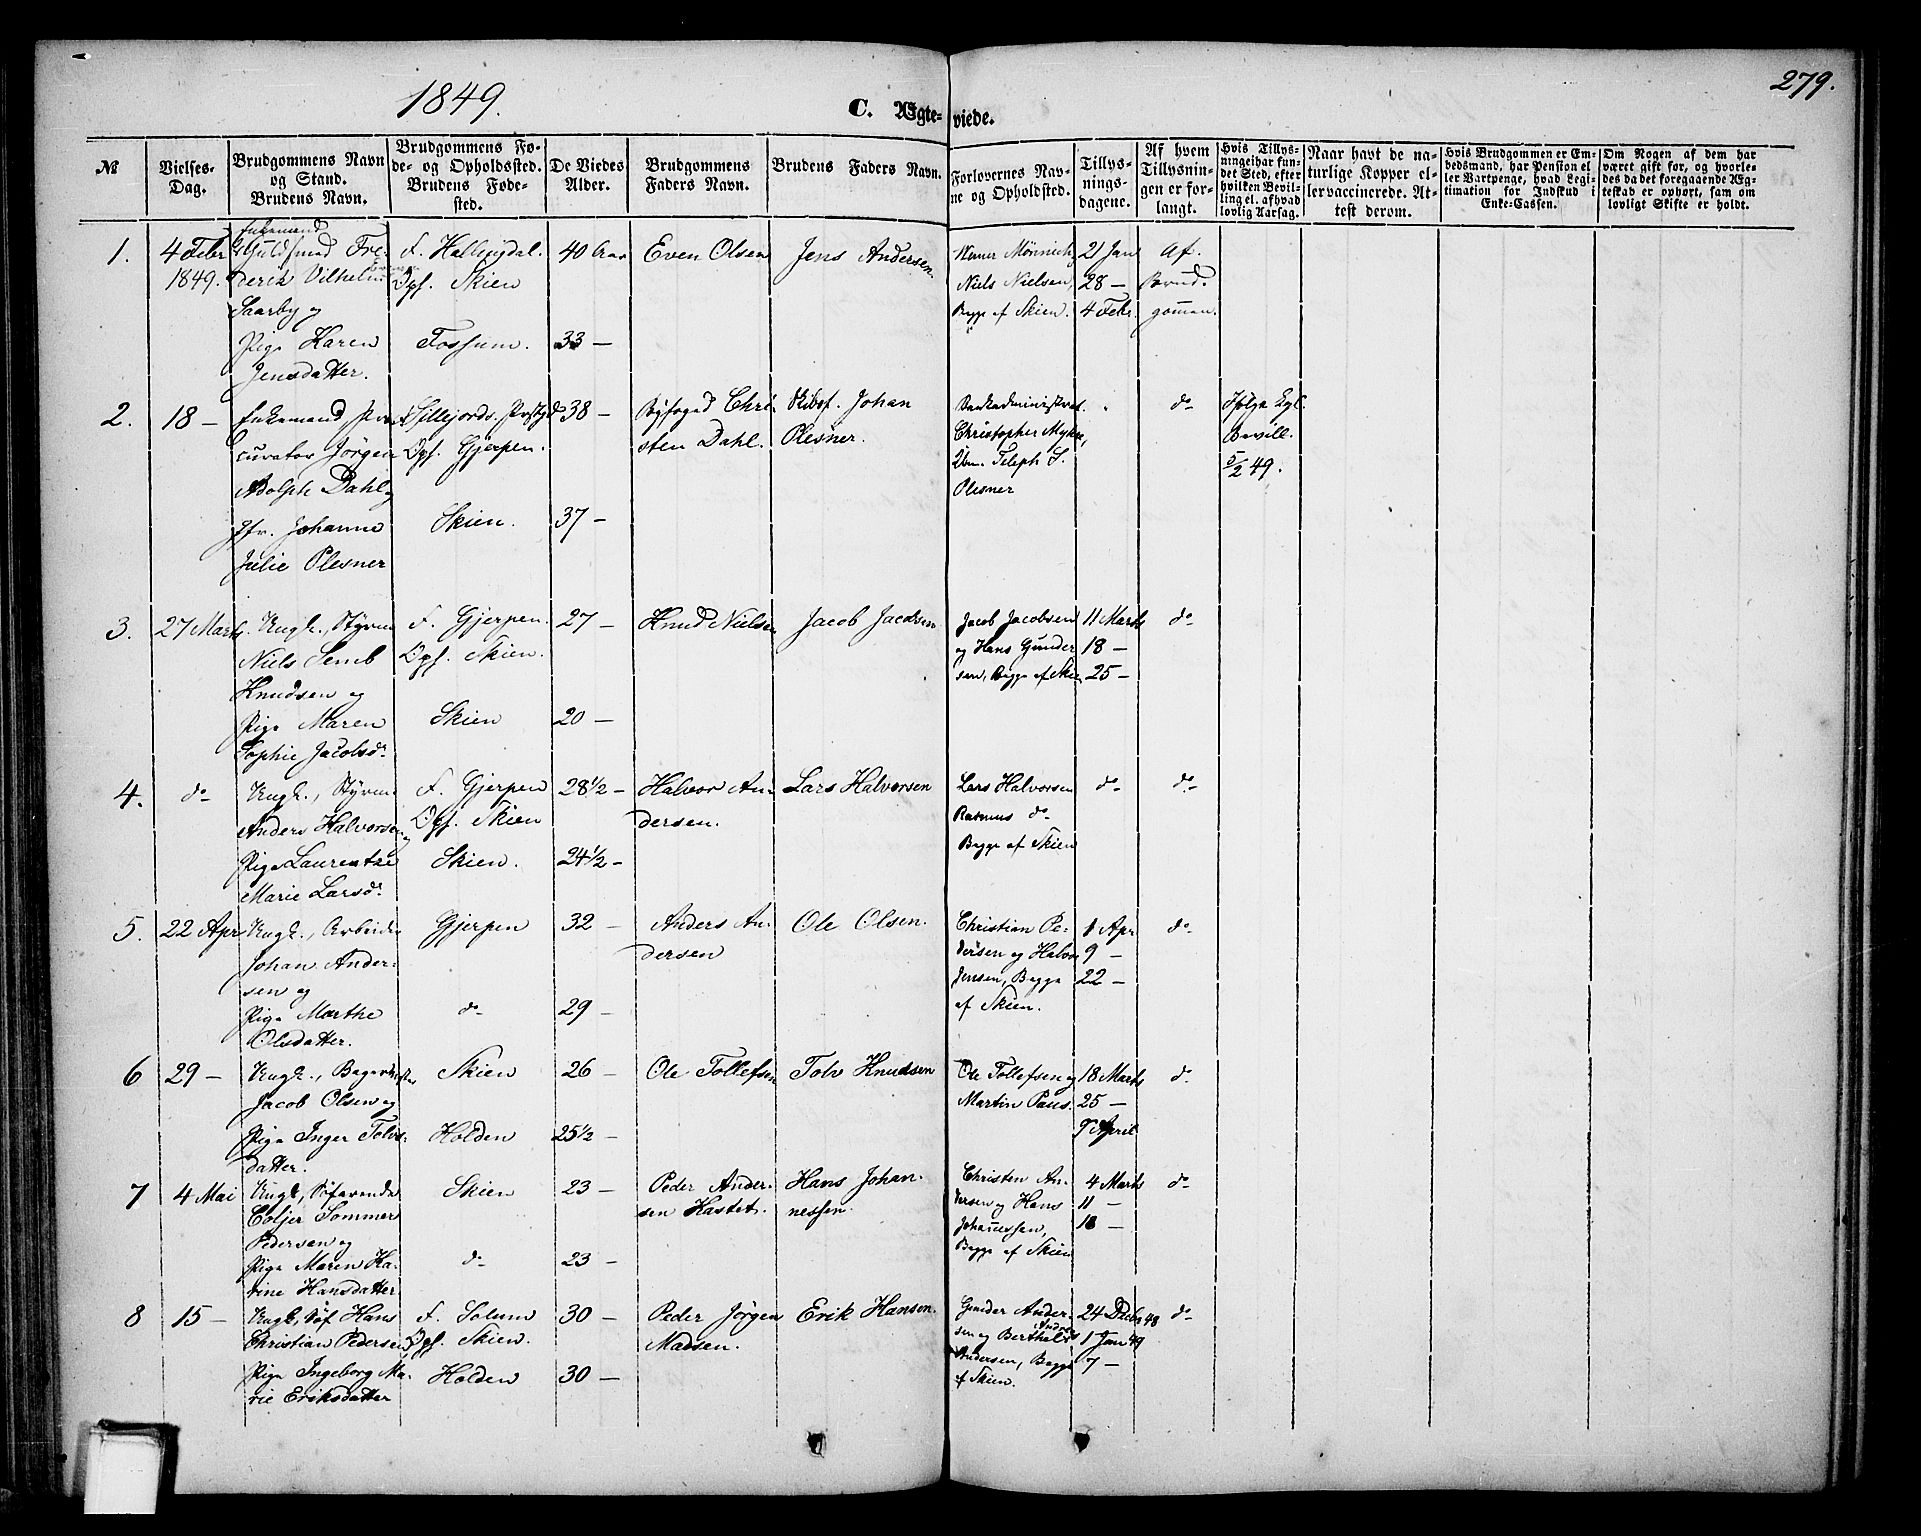 1849.
C. Ægteviede.
279.
№
Vielses-Dag.
Brudgommens Navn og Stand. Brudens Navn.
Brudgommens Føde- og Opholdssted. Brudens Fødested.
De Viedes Alder.
Brudgommens Faders Navn.
Brudens Faders Navn.
Forlovernes Navne og Opholdsted.
Tillysningsdagene.
Af hvem Tillysningen er forlangt.
Hvis Tillysning ei har fundet Sted, efter hvilken Bevilling el. afhvad lovlig Aarsag.
Naar havt de naturlige Kopper eller vaccinerede. Attest derom.
Hvis Brudgommen er Embedsmand, har Pension eller Vartpenge, hvad Legitimation for Indskud i Enke-Cassen.
Om Nogen af dem har været gift før, og hvorledes da det foregaaende Ægteskab er ophørt, sam om lovligt Skifte er holdt.
1.
4 Febr 1849.
Enkemand Guldsmed Frederik Vilhelm Saarby og
Pige Karen Jensdatter.
F. Hallingdal. Opf. Skien
Fossum.
40 Aar
33 —
Even Olsen
Jens Andersen
Werner Mønnich, Niels Nielsen, Begge af Skien.
21 Jan
28 —
4 Febr.
Af. Brudgommen.
2.
18 —
Enkemand, Procurator Jörgen Adolph Dahl og
Jfr. Johanne Julie Plesner
F. Sillejords Prstgd Opf. Gjerpen.
Skien.
38 —
37 —
Byfoged Christen Dahl.
Johan Plesner.
Bankadministrat. Christopher Myhre, Teleph S. Plesner
do
Ifølge Kgl. Bevill. 5/2 49.
3.
27 Marts
Ungk., Styrm. Niels Semb Knudsen og
Pige Maren Sophie Jacobsdr
F. Gjerpen. Opf. Skien.
Skien
27 —
20 —
Knud Nielsen
Jacob Jacobsen
Jacob Jacobsen og Hans Gundersen, Begge af Skien
11 Marts
18 —
25 —
do
4.
do
Ungk., Styrm. Anders Halvorsen og
Pige Laurentze Marie Larsdr
F. Gjerpen Opf. Skien
Skien.
28½ —
24½ —
Halvor Andersen.
Lars Halvorsen
Lars Halvorsen Rasmus do Begge af Skien
do
do
5.
22 Apr
Ungk., Arbeider Johan Andersen og
Pige Marthe Olsdatter.
Gjerpen
do
32 —
29 —
Anders Andersen
Ole Olsen.
Christian Pedersen og Halvor Jensen, Begge af Skien.
1 Apr
9 —
22 —
do
6
29 —
Ungk., Bagermester Jacob Olsen og
Pige Inger Tolvsdatter.
Skien
Holden
26 —
25½ —
Ole Tollefsen
Tolv Knudsen
Ole Tollefsen og Martin Paus.
18 Marts
25 —
April
do
7
4 Mai
Ungk, Søfarende Coljer Sommer Pedersen og
Pige Maren Katine Hansdatter
Skien
do
23 —
23 —
Peder Andersen Kastet.
Hans Johannessen.
Christen Andersen og Hans Johannessen, Begge af Skien
4 Marts
11 —
18 —
do
8
15 —
Ungk, Søf Hans Christian Pedersen
Pige Ingeborg Marie Eriksdatter
F. Solum Opf. Skien.
Holden
30 —
30 —
Peder Jørgen Madsen.
Erik Hansen.
Gunder Andersen og Berthel Andreas Andersen, Begge af Skien.
24 Decbr 48
1 Jan 49
7 —
do